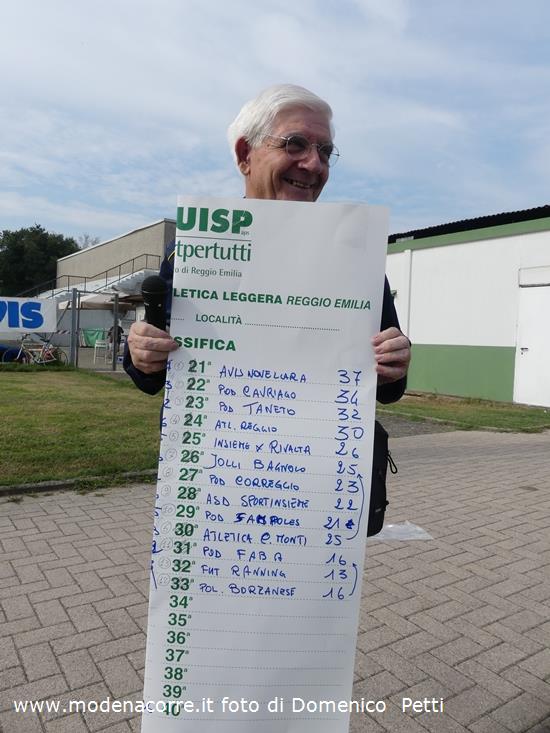 UISP
aps
tpertutti
o di Reggio Emilia
LETICA LEGGERA REGGIO EMILIA
LOCALITÀ
SSIFICA
21ª AVIS NOVELLARA 37
22ª POD CAVRIAGO 34
23ª POD TANETO 32
24ª ATL. REGGIO 30
25ª INSIEME X RIVALTA 26
26ª JOLLI BAGNOLO 25
27ª POD CORREGGIO 23
28ª ASD SPORTINSIEME 22
29ª POD 21
30ª ATLETICA C. MONTI 25
31ª POD FABA 16
32ª FUT RANNING 13
33ª POL. BORZANESE 16
34ª
35ª
36ª
37ª
38ª
39ª
40ª
VIS
www.modenacorre.it foto di Domenico Petti